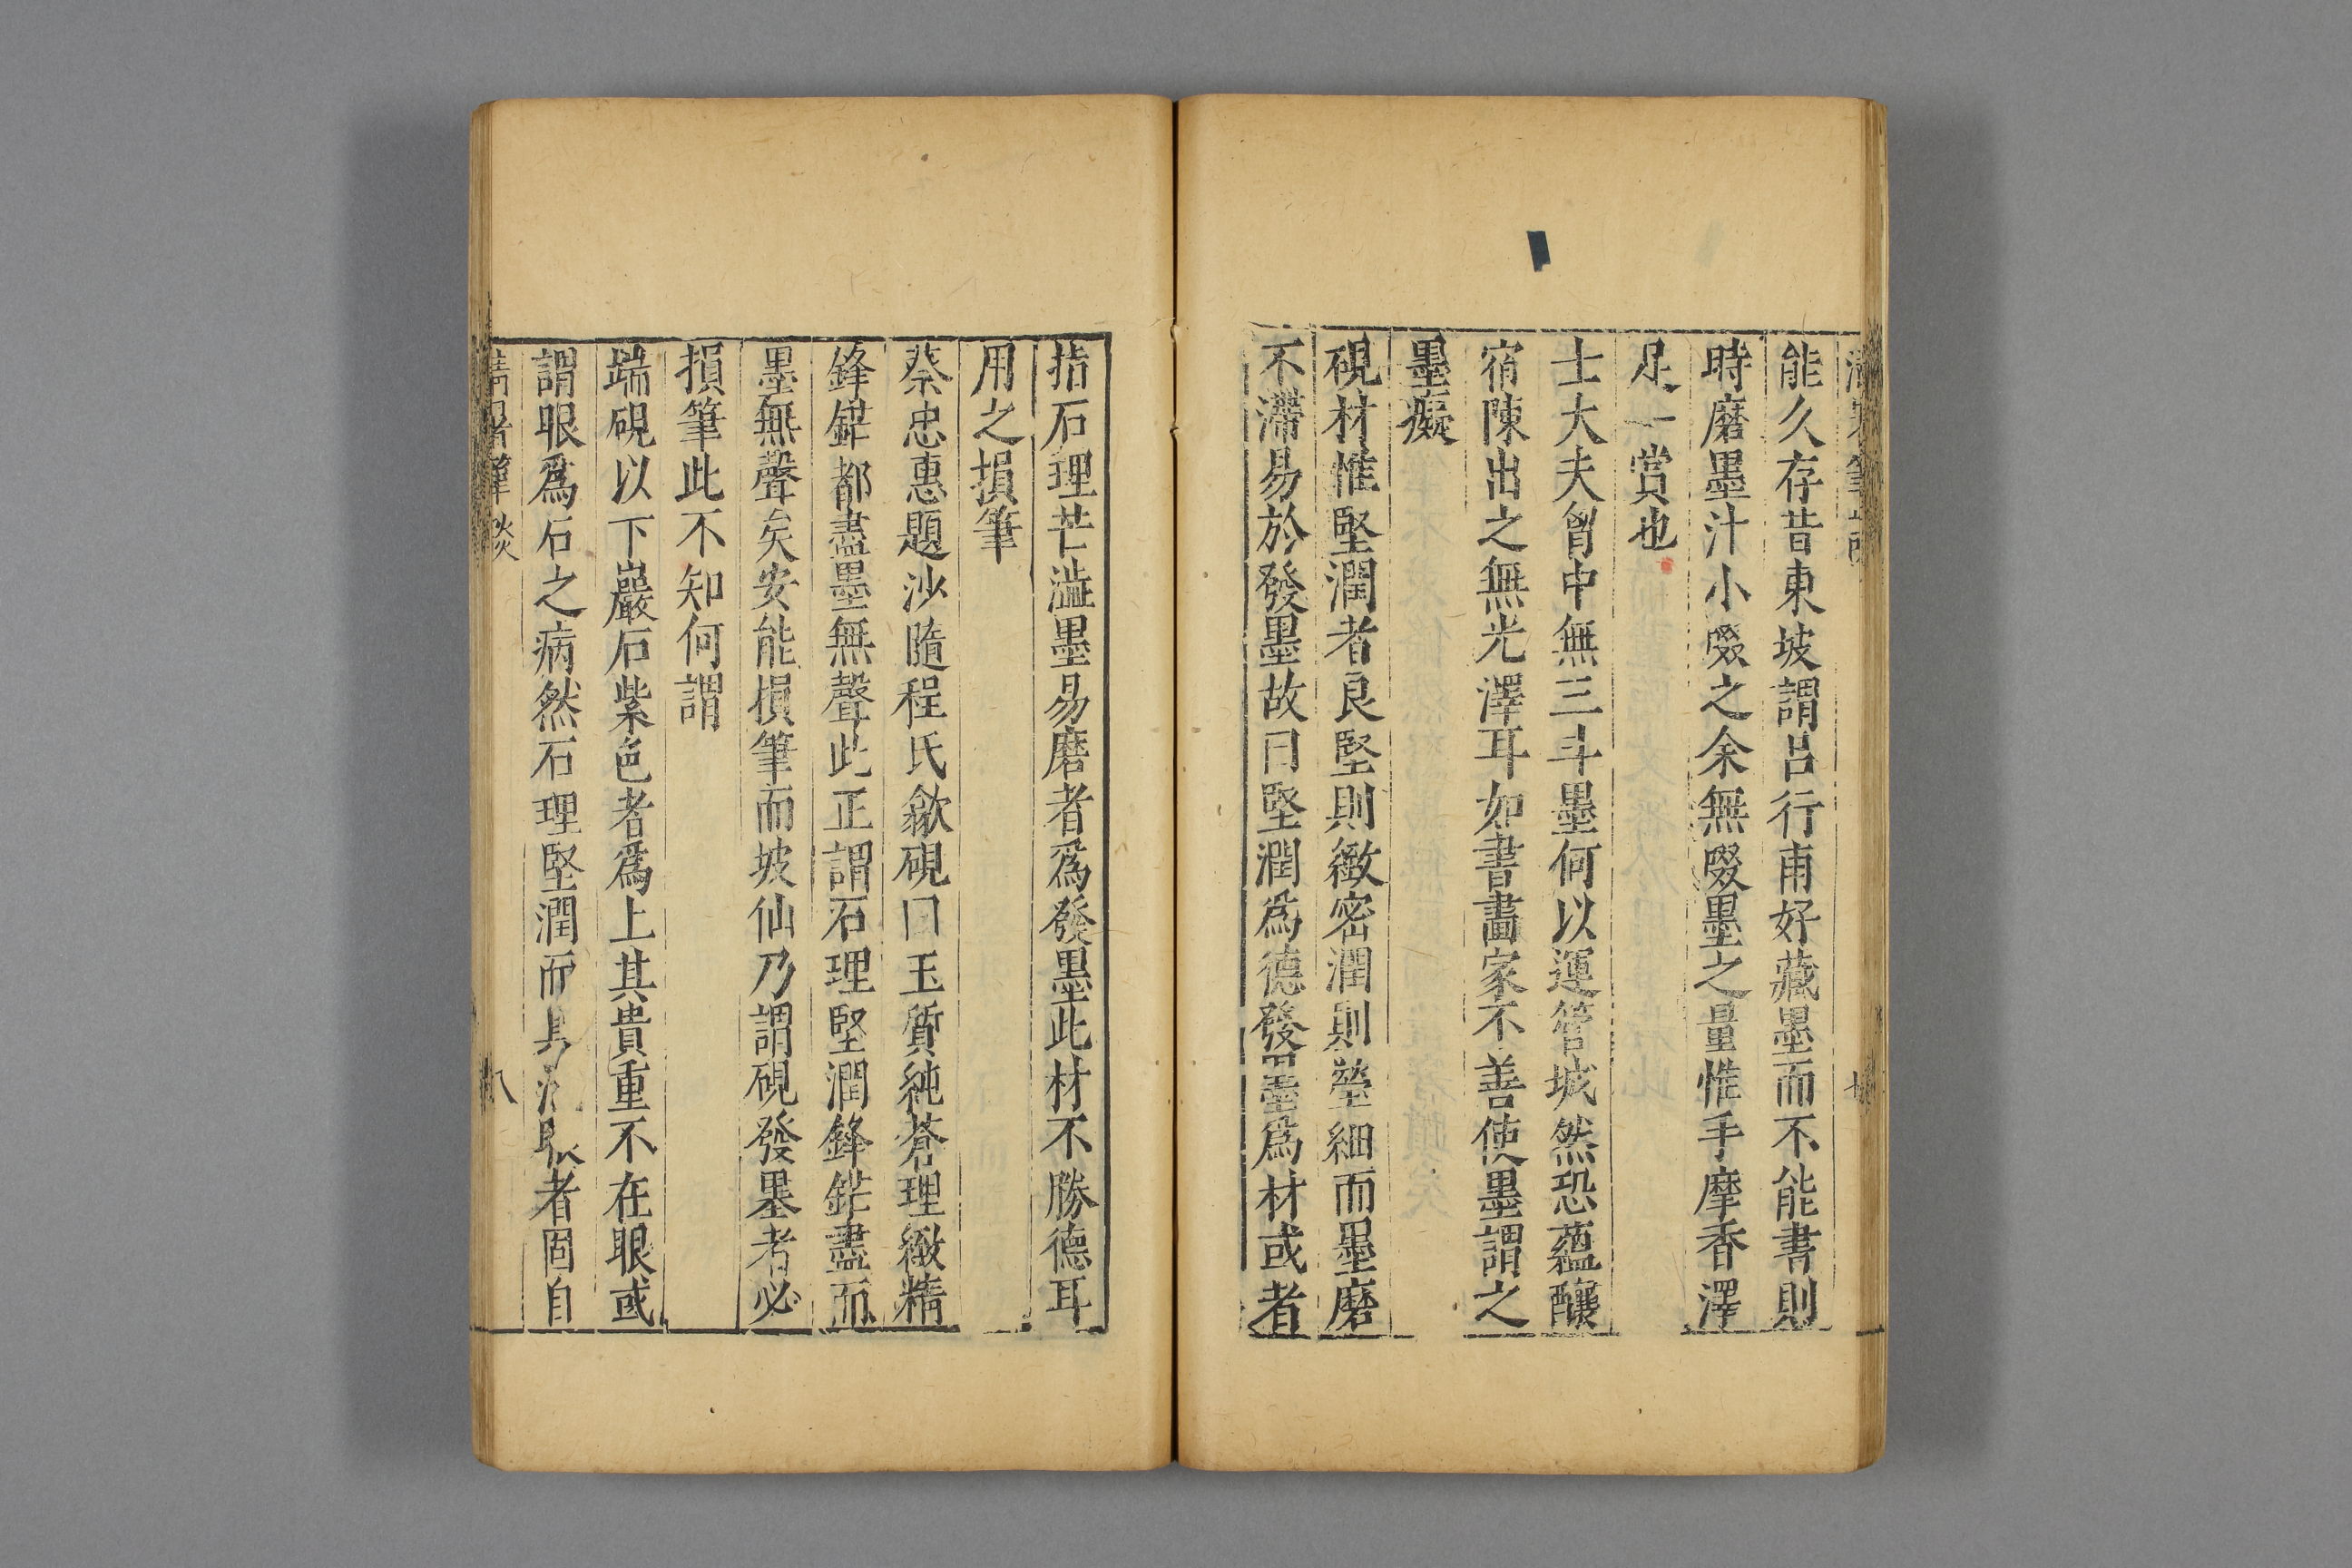 能久存昔東坡謂呂行甫好藏墨而不能書則
時磨墨汁小啜之余無啜墨之量惟手摩香澤
足一賞也
士大夫胷中無三斗墨何以運管城然恐蘊釀
宿陳出之無光澤耳如書畫家不善使墨謂之
墨癡
硯材惟堅潤者良堅則緻密潤則瑩細而墨磨
不滯易於發墨故曰堅潤爲德發墨爲材或者
指石理芒澁墨易磨者爲發墨此材不勝德耳
用之損筆
蔡忠惠題沙隨程氏歙硯曰玉質純蒼理緻精
鋒鋩都盡墨無聲此正謂石理堅潤鋒鋩盡而
墨無聲矣安能損筆而坡仙乃謂硯發墨者必
損筆此不知何謂
端硯以下巖石紫色者爲上其貴重不在眼或
謂眼爲石之病然石理堅潤而具活眼者固自
清暑筆談
八